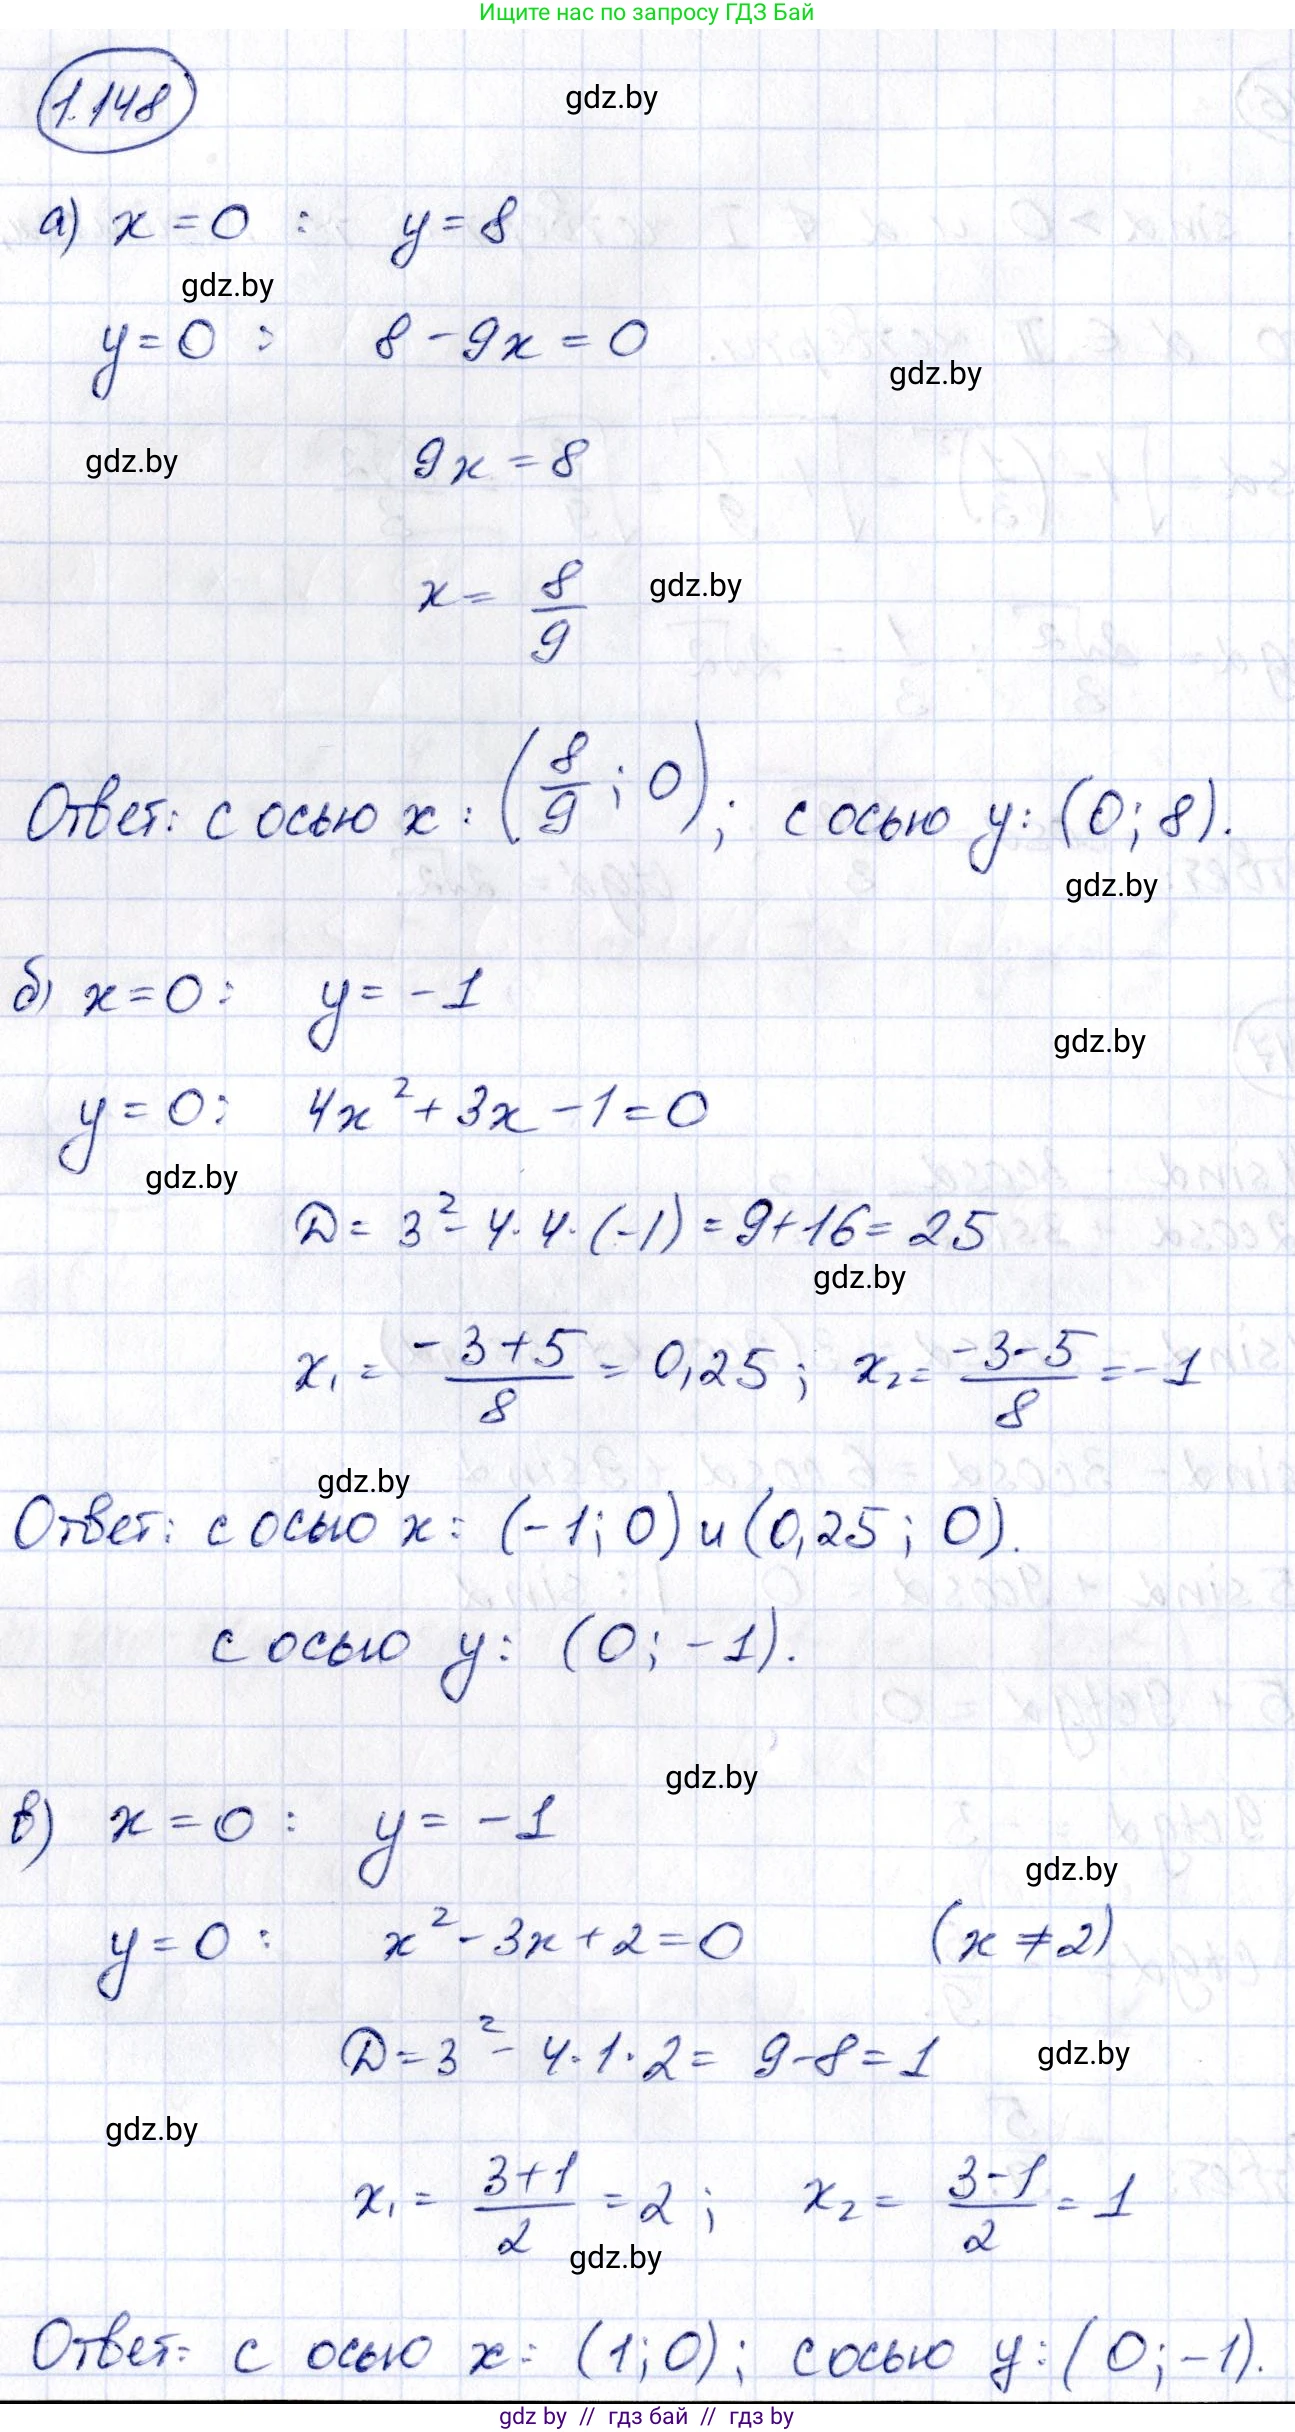 Ищите нас по запросу ГДЗ Бай
1.148
gdz.by
а) x = 0 : y = 8
gdz.by
y = 0 : 8 - 9x = 0
gdz.by
gdz.by
9x = 8
x = 8/9
gdz.by
Ответ: с осью x : (8/9 ; 0); с осью y: (0; 8).
gdz.by
б) x = 0 : y = -1
gdz.by
y = 0 : 4x² + 3x - 1 = 0
gdz.by
D = 3² - 4·4·(-1) = 9+16 = 25
gdz.by
x₁ = (-3+5)/8 = 0,25 ; x₂ = (-3-5)/8 = -1
gdz.by
Ответ: с осью x : (-1; 0) и (0,25 ; 0).
с осью y : (0; -1).
gdz.by
в) x = 0 : y = -1
gdz.by
y = 0 : x² - 3x + 2 = 0 (x ≠ 2)
D = 3² - 4·1·2 = 9-8 = 1
gdz.by
gdz.by
x₁ = (3+1)/2 = 2 ; x₂ = (3-1)/2 = 1
gdz.by
Ответ: с осью x : (1; 0); с осью y : (0; -1).
gdz by // гдз бай // гдз by